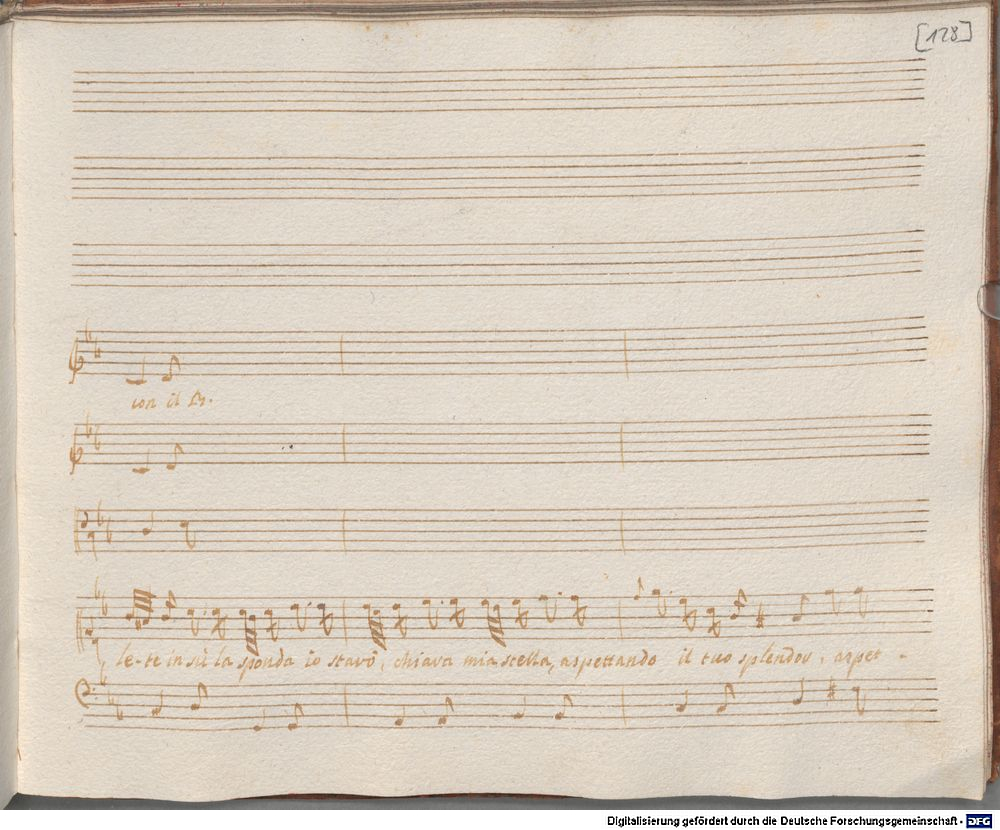 [128]
con il B.
le-te in sù la sponda io starò, chiara mia stella, aspettando il tuo splendor, aspet -
Digitalisierung gefördert durch die Deutsche Forschungsgemeinschaft - DFG